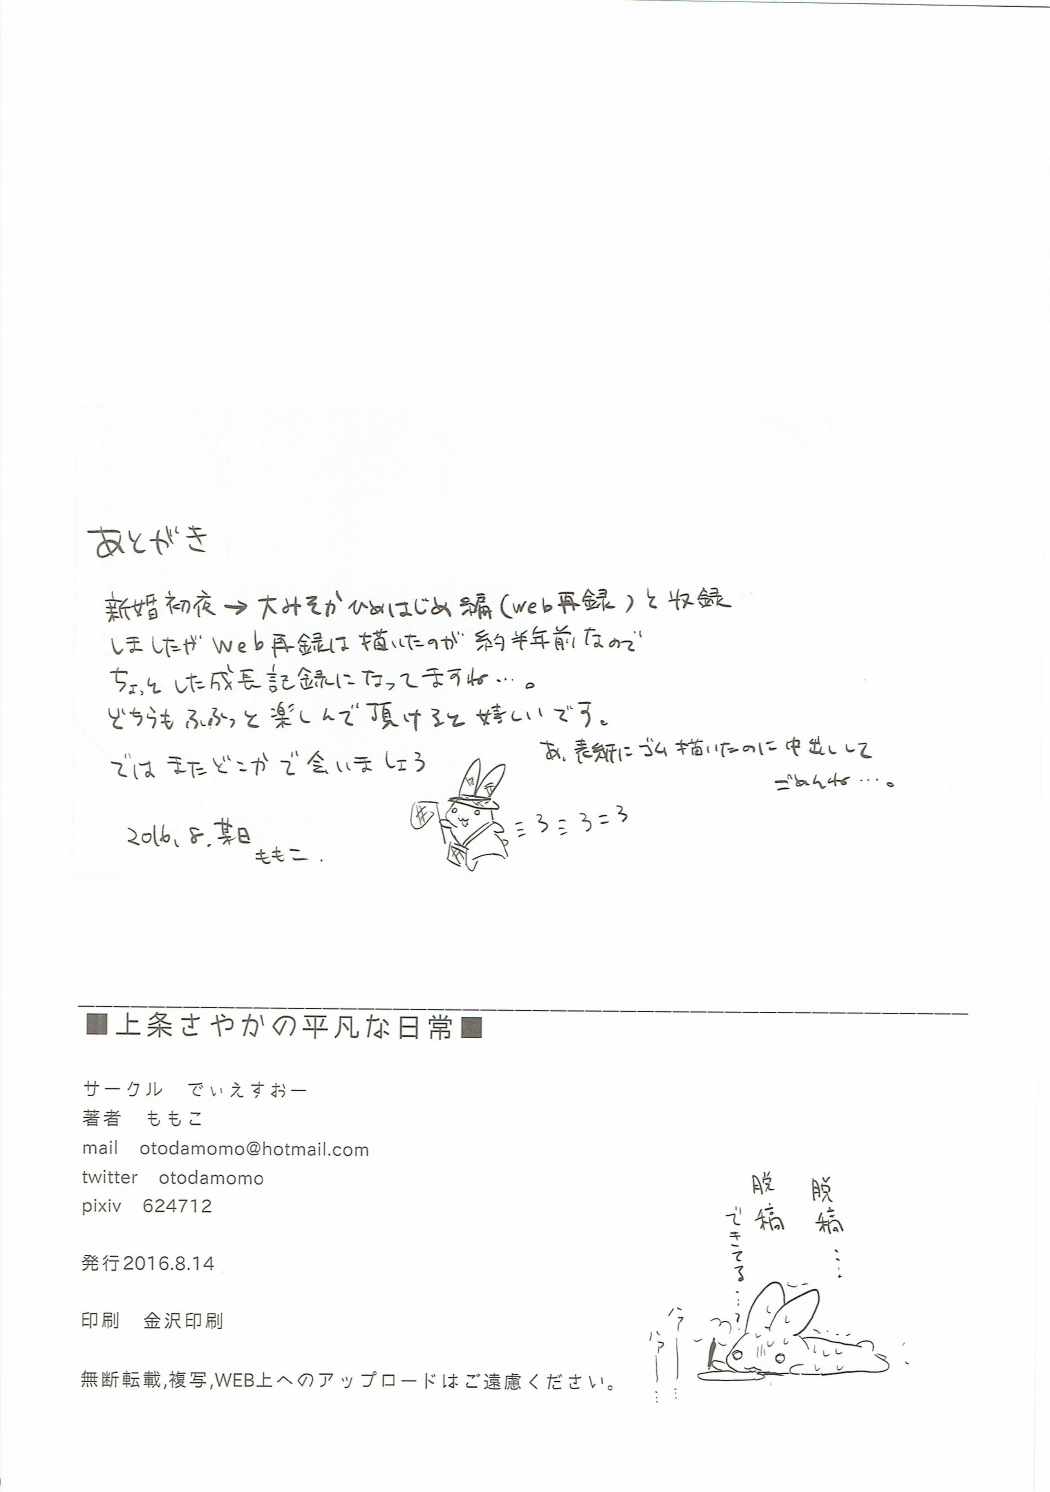 あとがき
新婚初夜→大みそかひめはじめ編(web再録)と収録
しましたがweb再録は描いたのが約半年前なので
ちょっとした成長記録になってますね…。
どちらもふふっと楽しんで頂けると嬉しいです。
ではまたどこかで会いましょう
あ、表紙にゴム描いたのに中出しして
ごめんね…。
2016.8.某日
ももこ.
■上条さやかの平凡な日常■
サークル でぃえすおー
著者 ももこ
mail otodamomo@hotmail.com
twitter otodamomo
pixiv 624712
発行2016.8.14
印刷 金沢印刷
無断転載,複写,WEB上へのアップロードはご遠慮ください。
脱稿…
脱稿
できてる…?